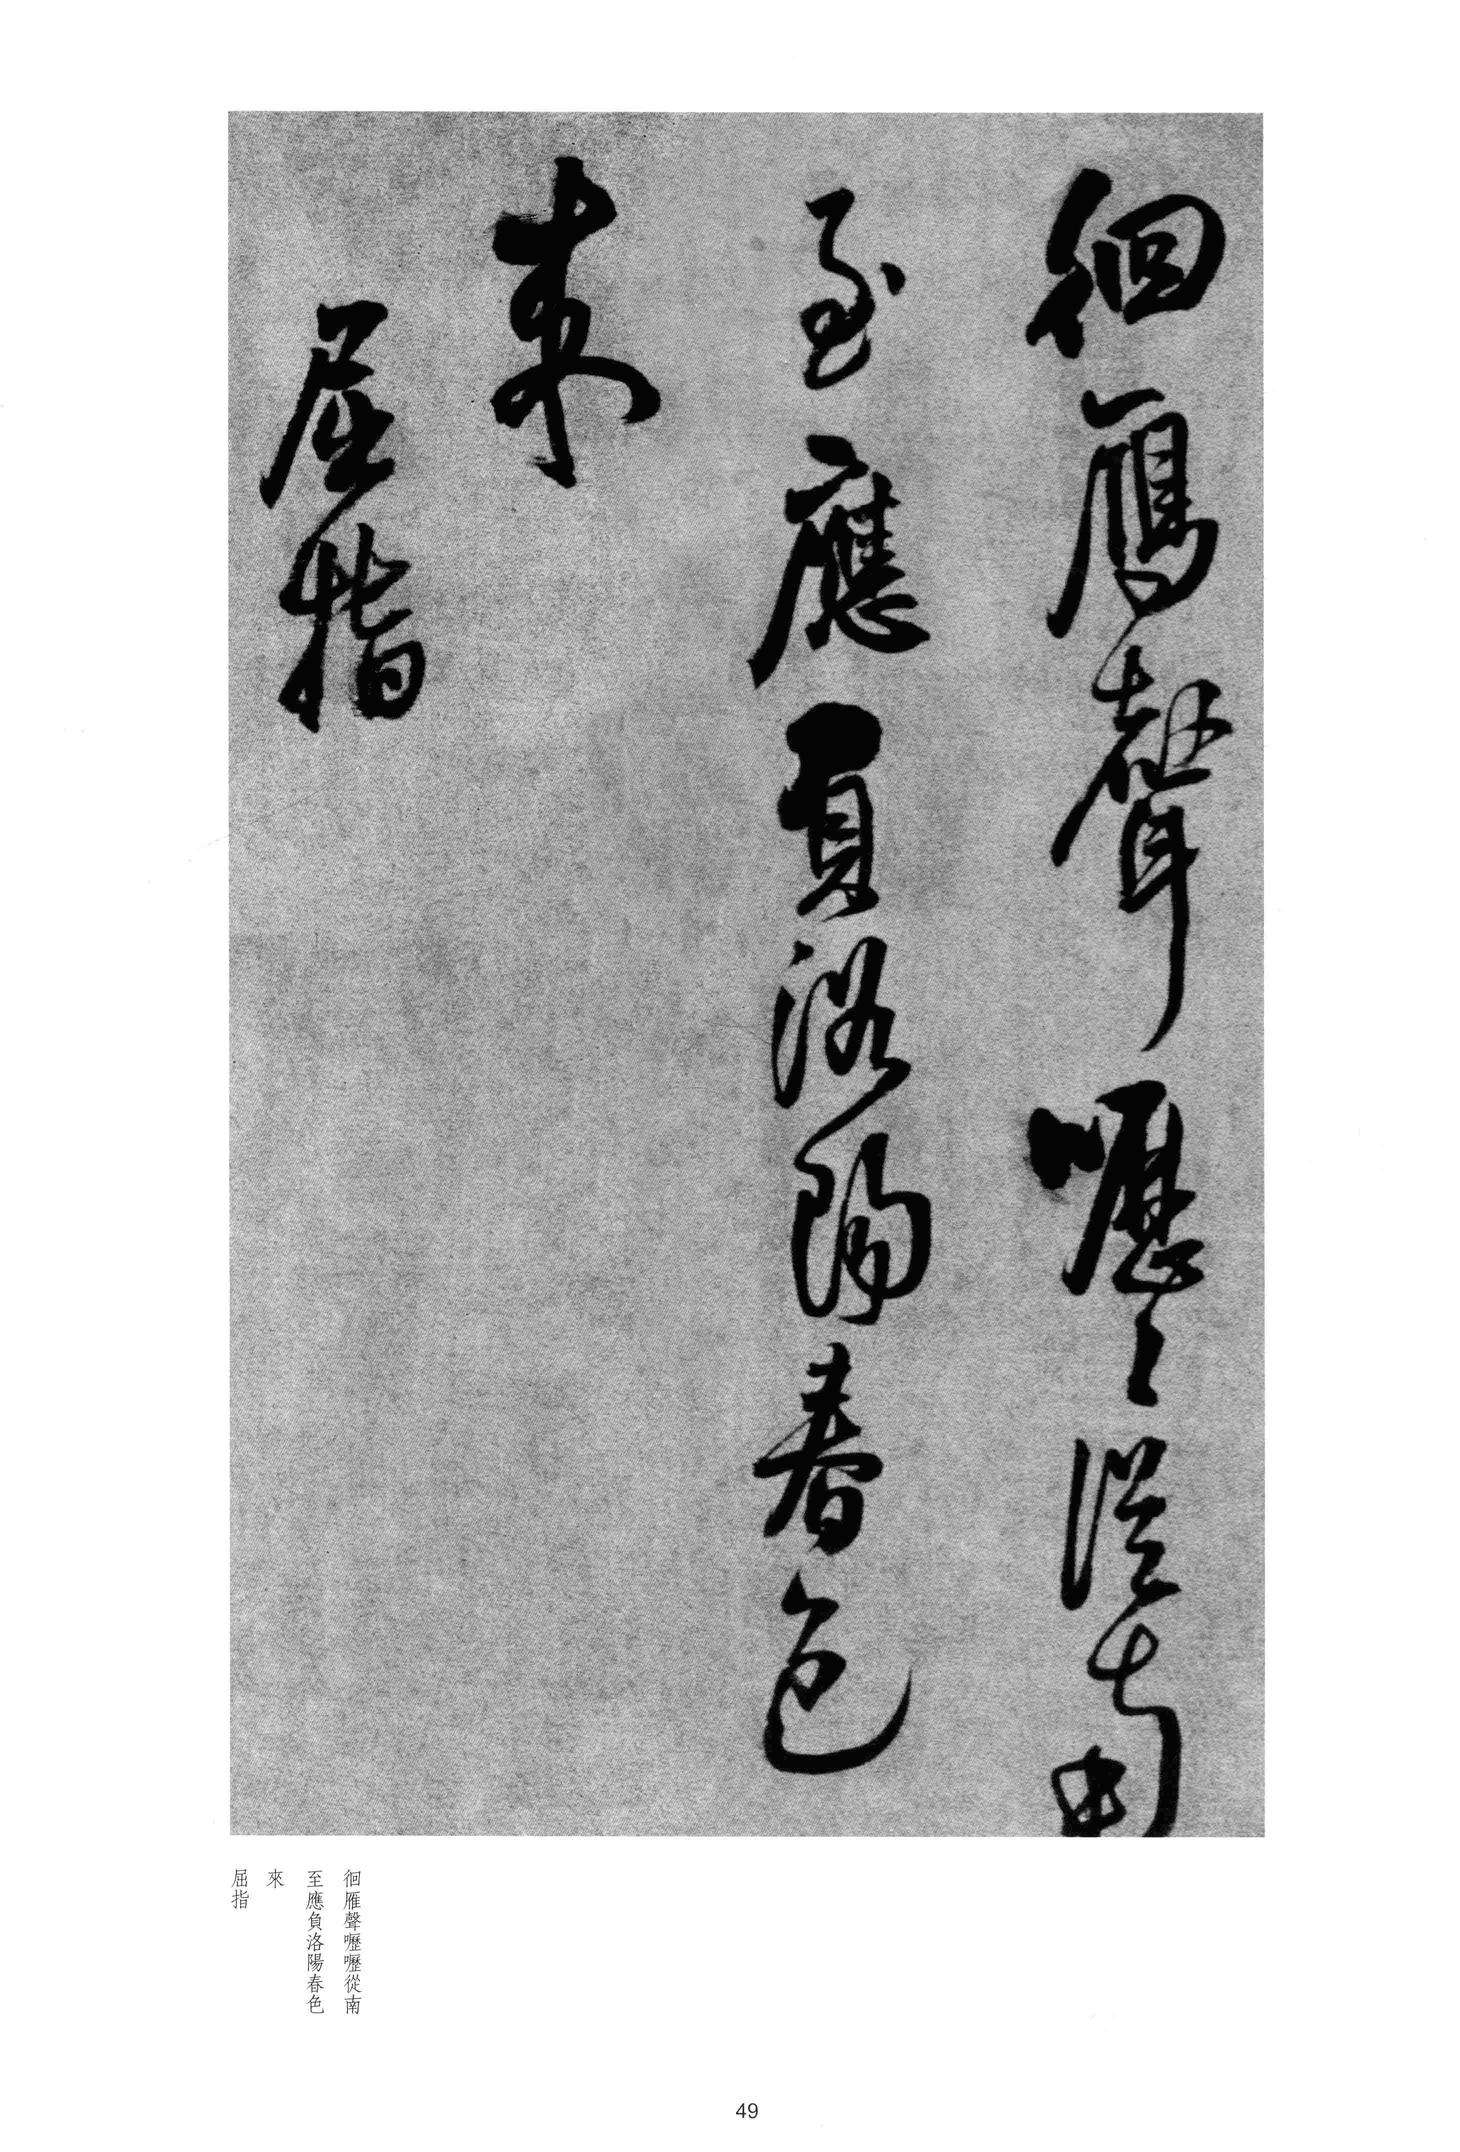 徊雁聲嚦〻從南
至應負洛陽春色
來
屈指
徊雁聲嚦嚦從南
至應負洛陽春色
來
屈指
49